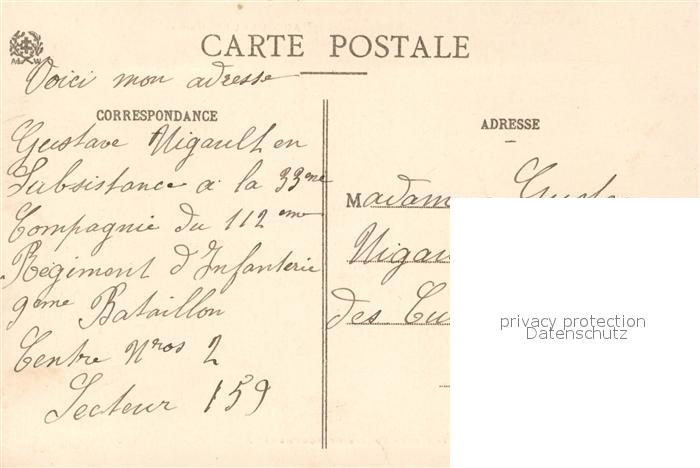 CARTE POSTALE
Voici mon adresse
CORRESPONDANCE
Gustave Nigault en
Subsistance a la 33eme
Compagnie du 112eme
Régiment d'Infanterie
9eme Bataillon
Centre Nros 2
Secteur 159
ADRESSE
Madam
Nigau
des
privacy protection
Datenschutz